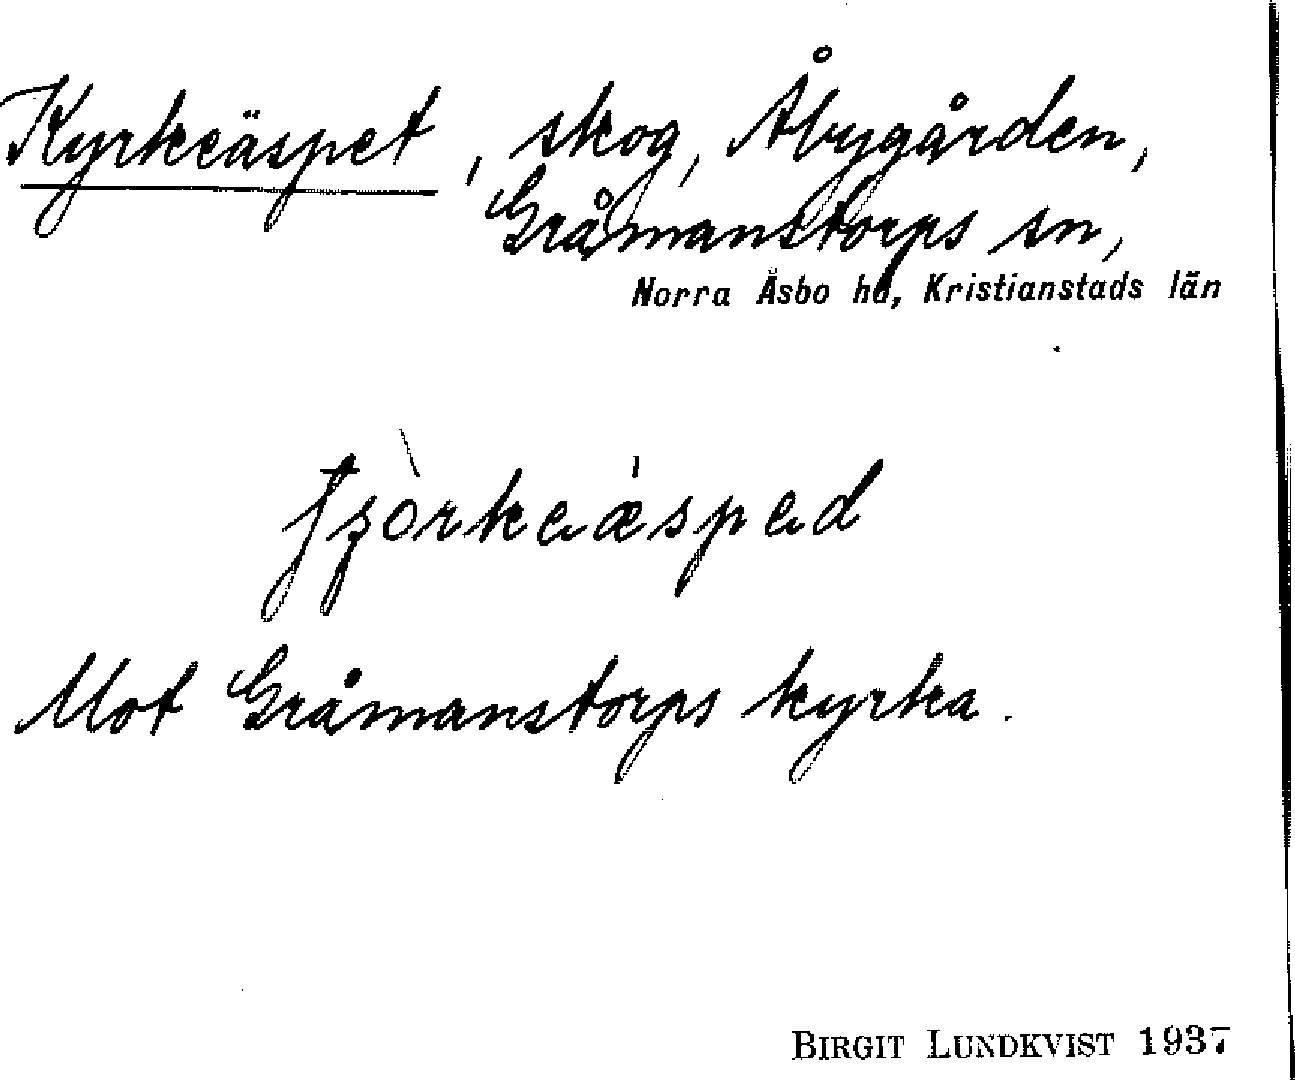 Kyrkeäspet, skog, Åbygården,
Gråmanstorps sn,
Norra Åsbo hd, Kristianstads län
tʂòrkəæ̍spəd
Mot Gråmanstorps kyrka.
BIRGIT LUNDKVIST 1937